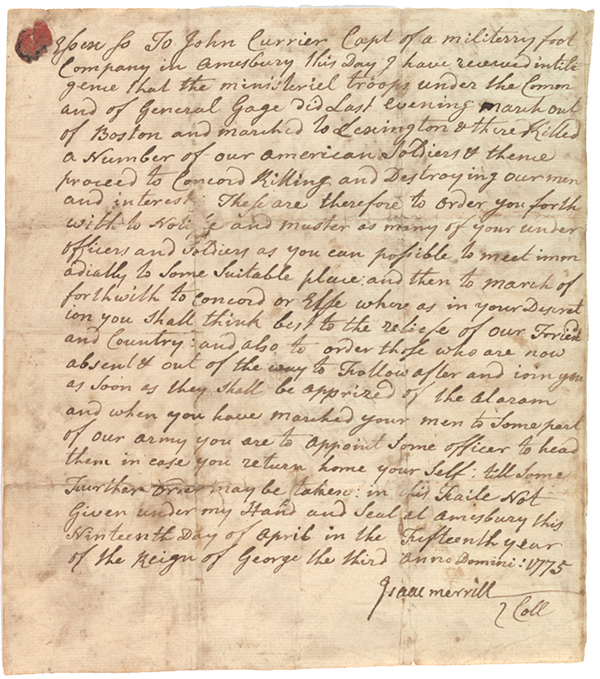 Essex ss To John Currier Capt of a militerry foot
Company in Amesbury This Day I have receved intili
gence that the ministeriel troops under the Comm
and of General Gage did Last evening march out
of Boston and marched to Lexington & there Killed
a Number of our american Soldiers & thence
proceed to Concord Killing and Destroying our men
and interest: These are therefore to order you forth
with to Notifie and muster as many of your under
officers and Soldiers as you can possible to meet imm
adially to Some Suitable place: and then to march of
forthwith to Concord or Else where as in your Descret
ion you Shall think best to the reliefe of our Friend
and Country: and also to order those who are now
absent & out of the way to Follow after and ioin you
as Soon as they shall be apprized of the Alaram
and when you have marched your men to Some part
of our army you are to appoint Some officer to head
them in case you return home your Self: till Some
Further order may be taken: in this Faile Not
Given under my Hand and Seal at Amesbury this
Ninteenth Day of April in the Fifteenth year
of the Reign of George the third Anno Domini: 1775
Isaac merrill
Coll